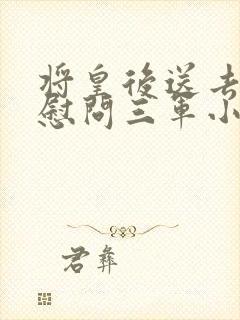 将皇後送去
慰問三軍小
君彝